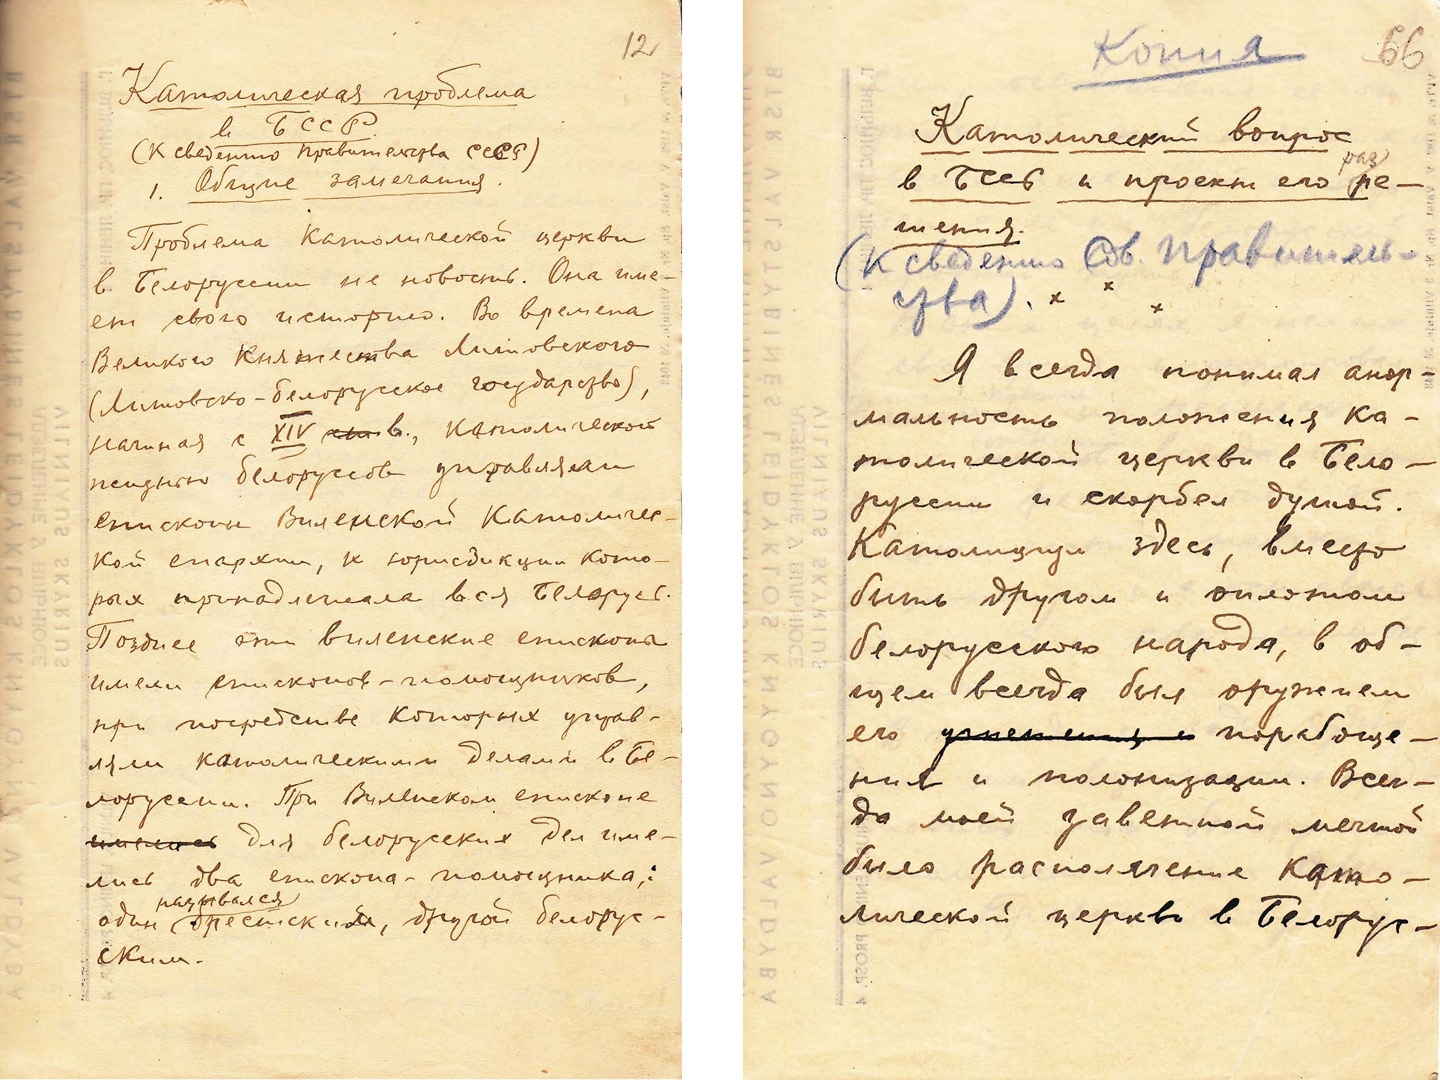 12
Католическая проблема
в БССР.
(К сведению правительства СССР)
1. Общие замечания.
Проблема Католической церкви
в Белоруссии не новость. Она име-
ет свою историю. Во времена
Великого Княжества Литовского
(Литовско-белорусское государство),
начиная с XIV в., католической
жизнью белорусов управляли
епископы Виленской Католичес-
кой епархии, к юрисдикции кото-
рых принадлежала вся Белорус.
Позднее эти виленские епископы
имели епископов-помощников,
при посредстве которых управ-
ляли католическими делами в Бе-
лоруссии. При Виленском епископе
имелись для белорусских дел име-
лись два епископа-помощника,:
назывался
один брестский, другой белорус-
ским.
Копия
66
Католический вопрос
раз
в БССР и проект его ре-
шения.
(К сведению Сов. Правитель-
ства).
Я всегда понимал анор-
мальность положения ка-
толической церкви в Бело-
руссии и скорбел душой.
Католицизм здесь, вместо
быть другом и оплотом
белорусского народа, в об-
щем всегда был оружием
его угнетения и порабоще-
ния и полонизации. Всег-
да моей заветной мечтой
было располячение Като-
лической церкви в Белорус-
BTSR VALSTYBINĖS LEIDYKLOS KNYGYNO VALDYBA
VILNIAUS SKYRIUS
BTSR VALSTYBINĖS LEIDYKLOS KNYGYNO VALDYBA
VILNIAUS SKYRIUS